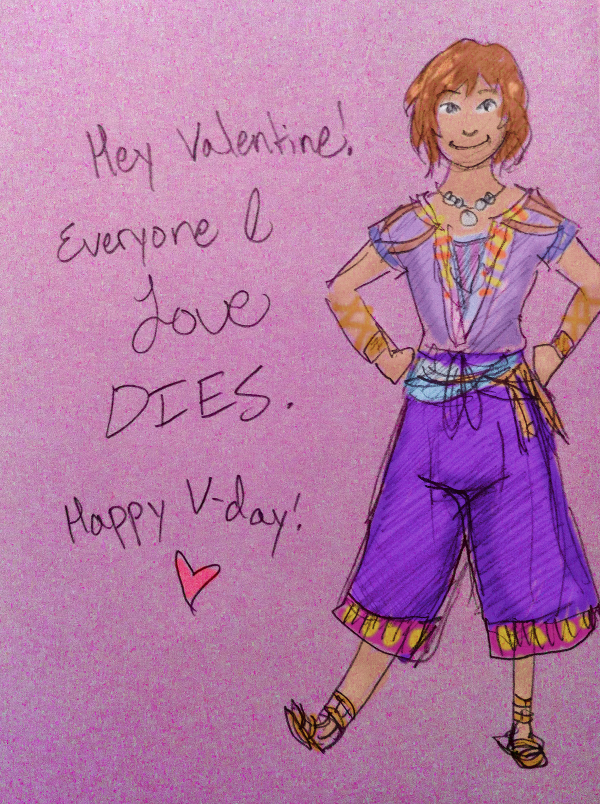 Hey Valentine!
Everyone I
Love
DIES.
Happy V-day!